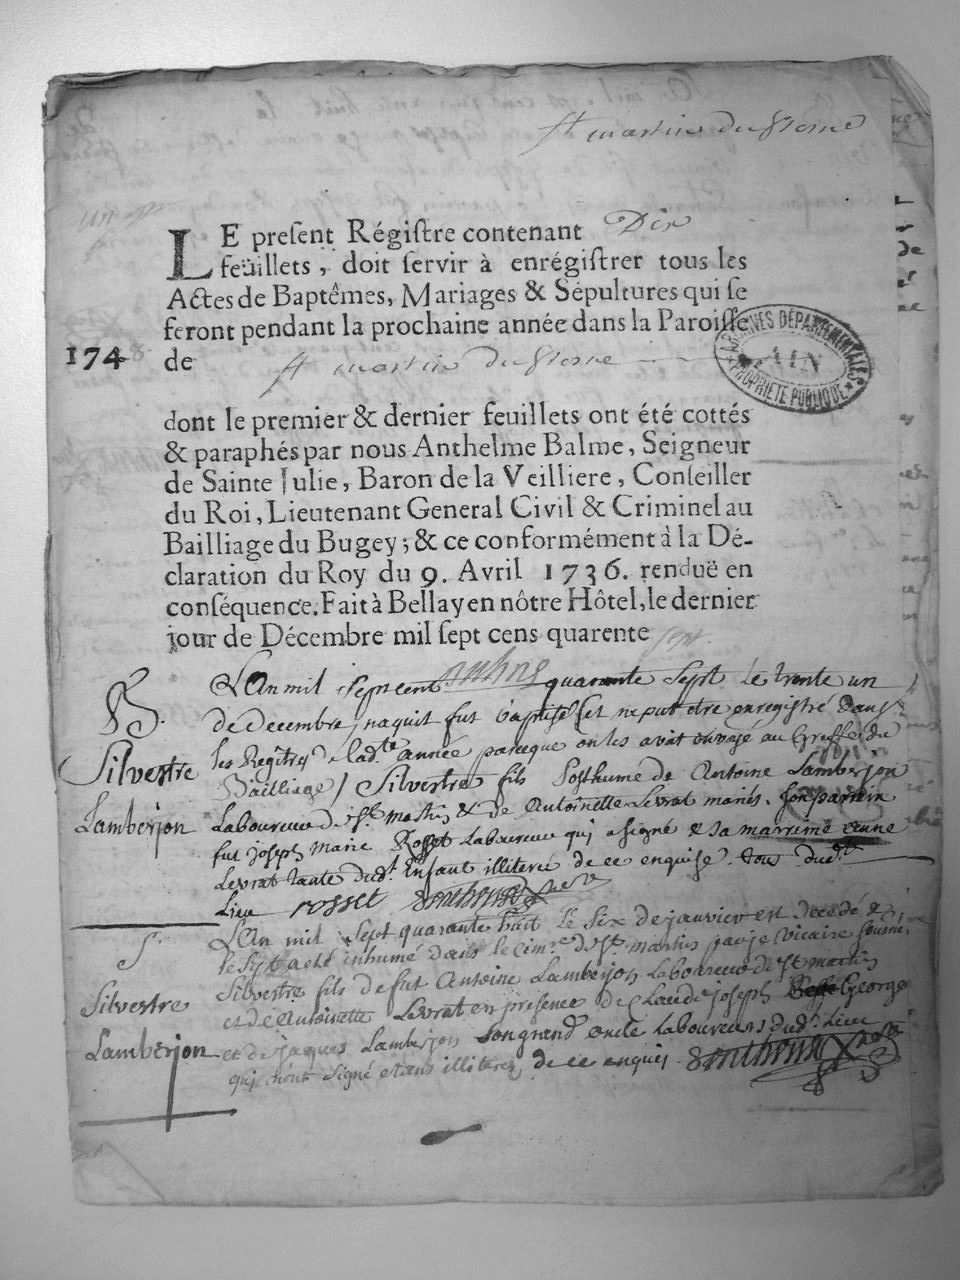 St martin du Frene
LE present Régistre contenant Dix
feüillets, doit servir à enrégistrer tous les
Actes de Baptêmes, Mariages & Sépultures qui se
feront pendant la prochaine année dans la Paroisse
1748 de St martin du Frene
ARCHIVES DÉPARTEMENTALES
AIN
PROPRIÉTÉ PUBLIQUE
dont le premier & dernier feuillets ont été cottés
& paraphés par nous Anthelme Balme, Seigneur
de Sainte Julie, Baron de la Veilliere, Conseiller
du Roi, Lieutenant General Civil & Criminel au
Bailliage du Bugey; & ce conformément à la Dé-
claration du Roy du 9. Avril 1736. renduë en
conséquence. Fait à Bellay en nôtre Hôtel, le dernier
jour de Décembre mil sept cens quarente sept.
B.
Silvestre
Lamberjon
L'An mil sept cent quarante sept le trente un
de Decembre naquit fut baptisé (et ne put etre enregistré dans
les Regitres de lad.te année parceque on les avait envoyé au Greffe du
Bailliage) Silvestre fils Posthume de Antoine Lamberjon
Laboureur de St martin & de Antoinette Levrat mariés. son parrein
fut joseph marie Rosset Laboureur qui a signé & sa marreine
Levrat tante dud.t Enfant illiteré de ce enquise. tous dud.t
Lieu rosset
S.
Silvestre
Lamberjon
L'An mil sept quarante huit le six de janvier est decedé &
le sept a eté inhumé dans le Cim.re de St martin par je vicaire soussi.
Silvestre fils de fut Antoine Lamberjon Laboureur de St martin
et de Antoinette Levrat en presence de Claude joseph George
et de jaques Lamberjon son grand oncle Laboureurs dud.t Lieu
qui n'ont signé etans illiteres de ce enquis.